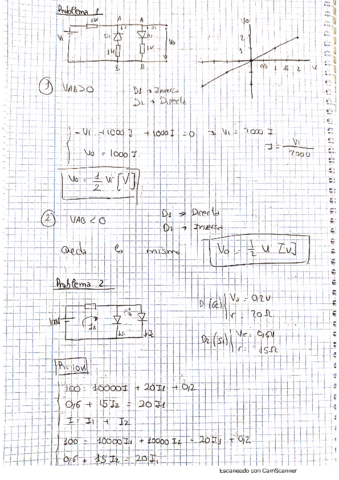 Problema 1
1K
A A
Vi
D1
D2
1K
1K
Vo
B B
Vo
① VAB>0 D1 → Inversa
D2 → Directa
-Vi + 1000 I + 1000 I = 0 → Vi = 2000 I
Vo = 1000 I
I = Vi / 2000
Vo = 1/2 Vi [V]
② VAB < 0 D1 → Directa
D2 → Inversa
Queda lo mismo
Vo = 1/2 Vi [V]
Problema 2
100V
D1
D2
D1 (Ge) Vγ = 0,2V
r = 20 Ω
D2 (Si) Vγ = 0,6V
r = 15 Ω
100 = 10000 I + 20 I1 + 0,2
0,6 + 15 I2 = 20 I1
I = I1 + I2
100 = 10000 I1 + 10000 I2 + 20 I1 + 0,2
0,6 + 15 I2 = 20 I1
Escaneado con CamScanner